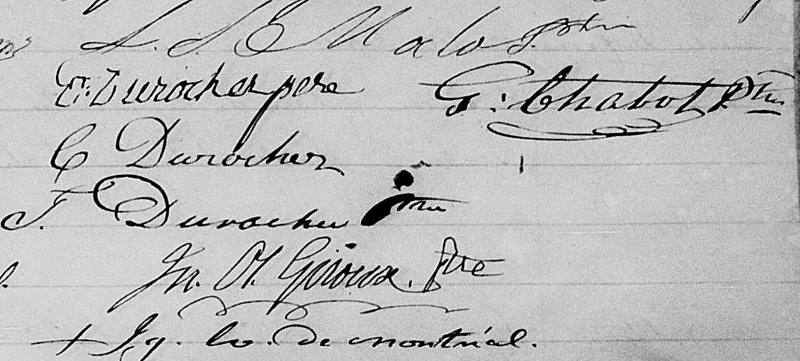 L. L. E Malo Ptre
E. Durocher pere G. Chabot Ptre
E Durocher
T. Durocher Ptre
Jn. Ol. Giroux. Ptre
+ Ig. Ev. de Montréal.